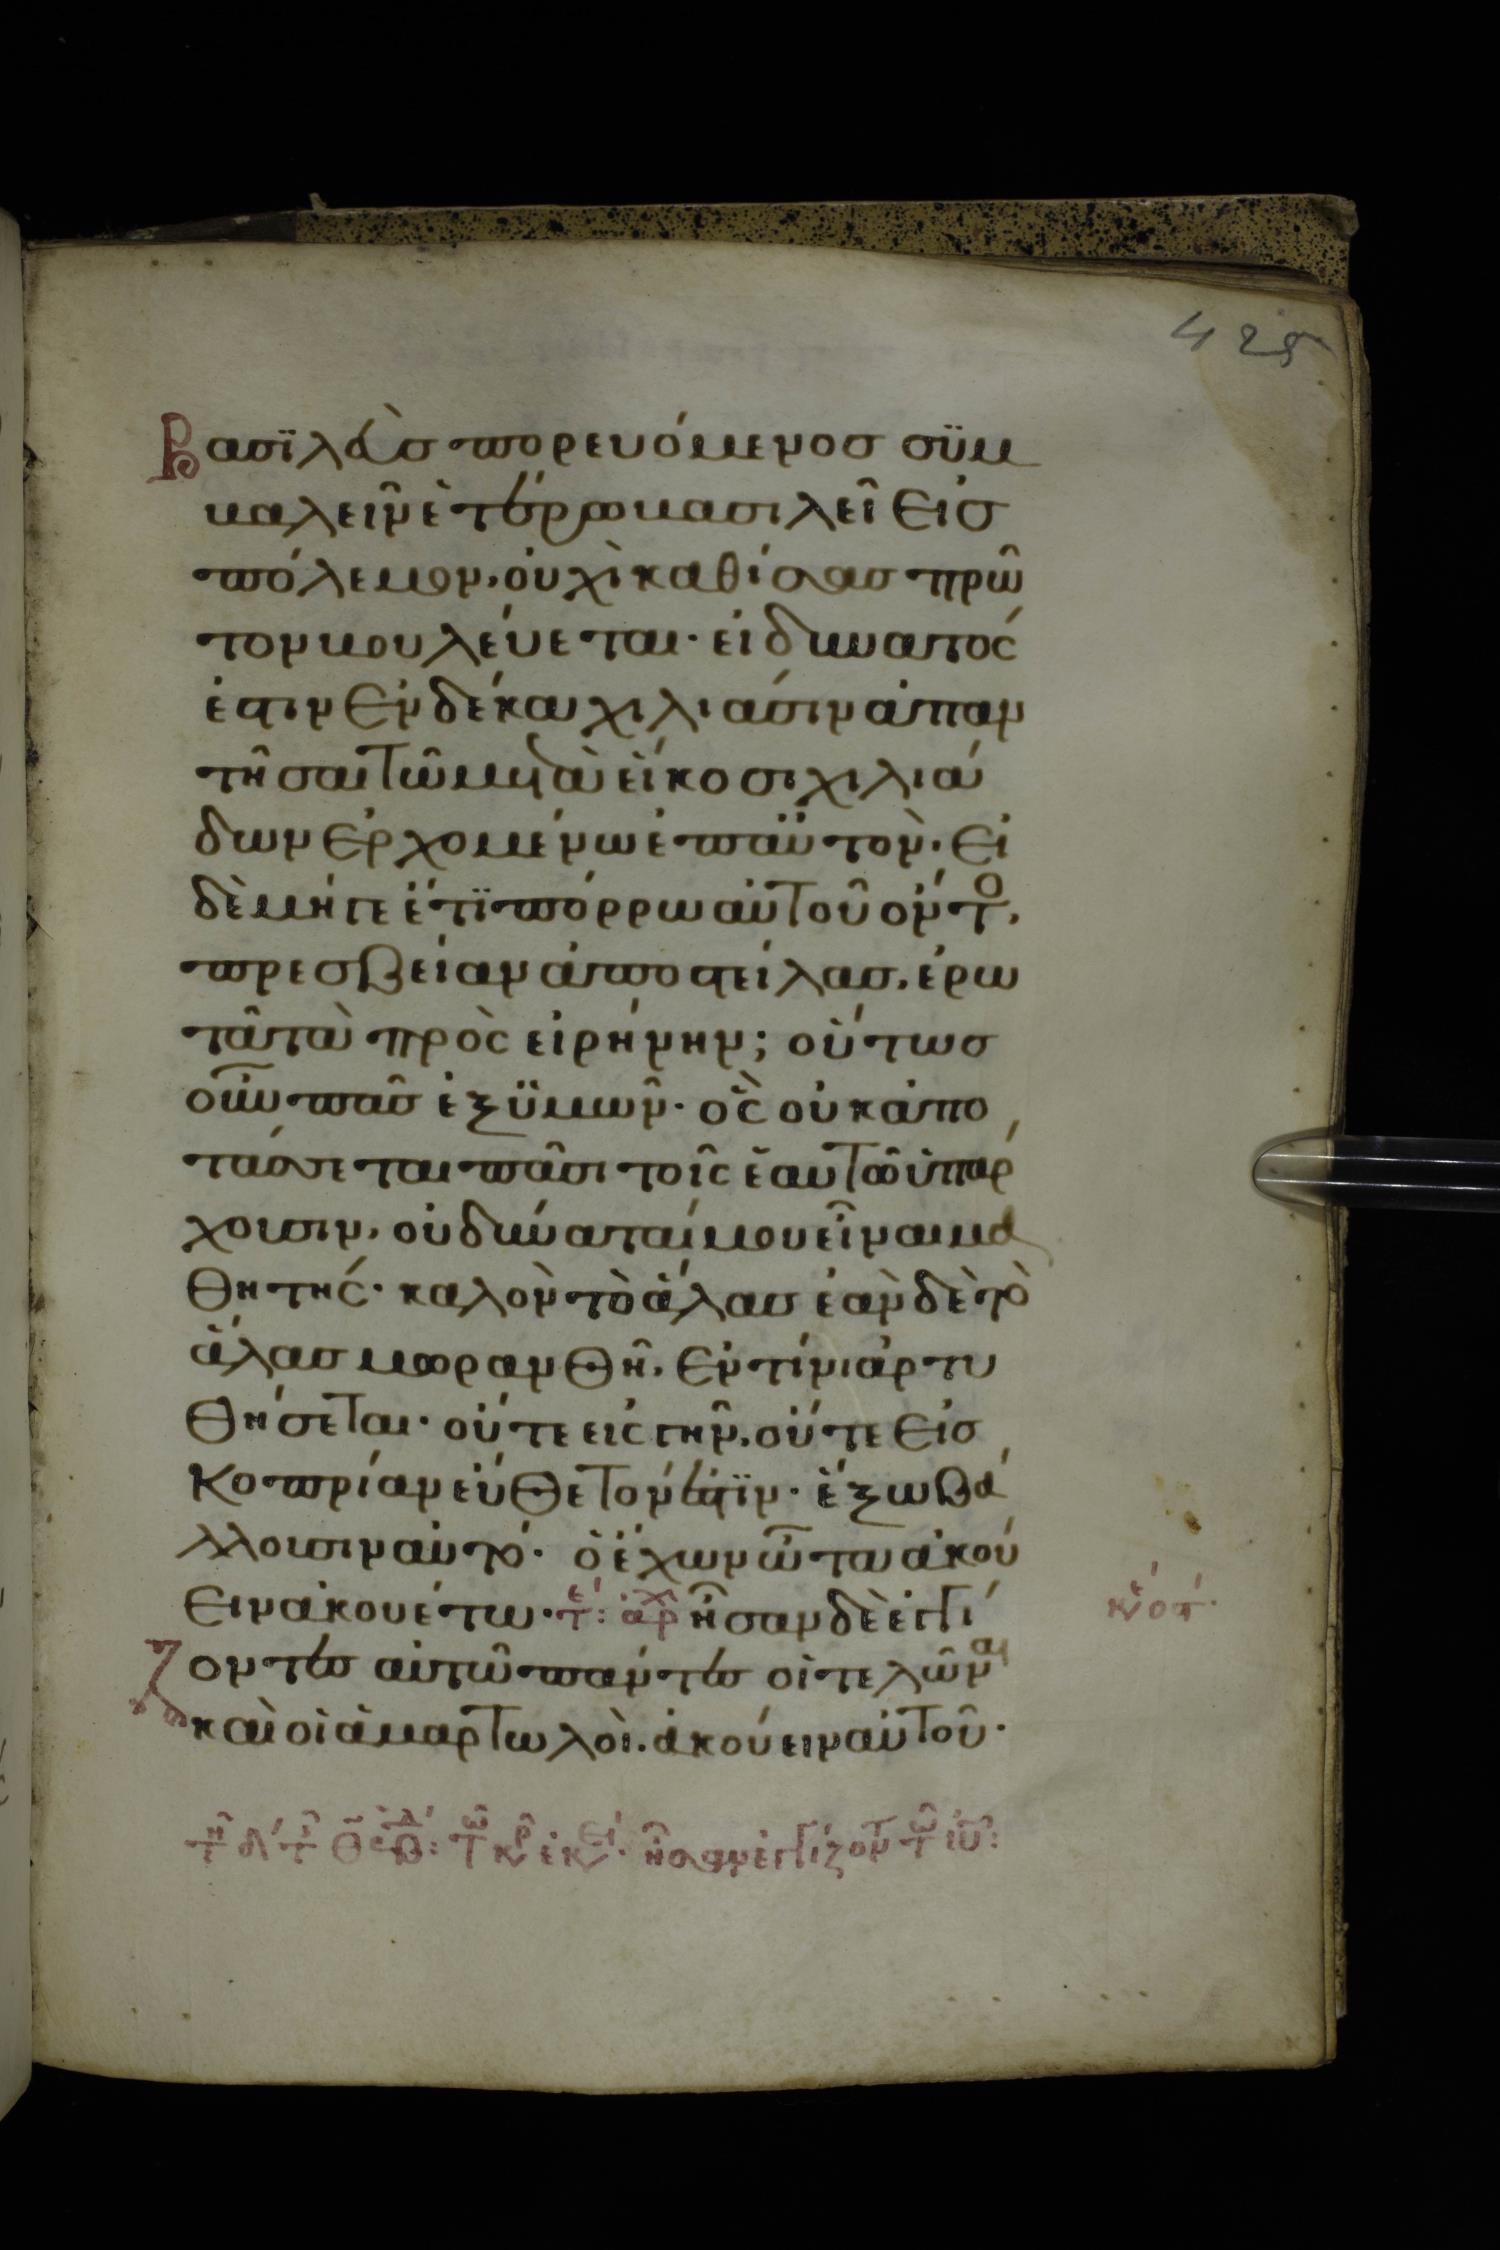 425
Βασϊλεὺσ πορευόμενοσ σϋμ
βαλεῖν ἑτέρω βασιλεῖ εἰσ
πόλεμον, οὐχὶ καθίσασ πρῶ
τον βουλέυεται· εἰ δυνατός
ἐστιν ἐν δέκα χιλιάσιν ἀπαν
τῆσαι τῶ μετὰ εἴκοσι χιλιά
δων ἐρχομένω ἐπαϋτὸν· εἰ
δὲ μήγε ἔτϊ πόρρω αὐτοῦ ὄντο,
πρεσβείαν ἀποστείλασ, ἐρω
τᾶ τὰ πρὸς εἰρήνην; οὕτωσ
οὖν πᾶσ ἐξ ϋμῶν· ὃς οὐκ ἀπο
τάσσεται πᾶσι τοῖς ἑαυτοῦ ὑπάρ
χουσιν, οὐ δύναταί μου εἶναι μα
θητής· καλὸν τὸ ἅλασ ἐὰν δὲ τὸ
ἅλασ μωρανθῆ, ἐν τίνι ἀρτυ
θήσεται· οὔτε εἰς γῆν, οὔτε εἰσ
κοπρίαν εὔθετόν ἐστϊν· ἔξω βά
λλουσιν αὐτό· ὁ ἔχων ὦτα ἀκού
ειν ἀκουέτω· τε: ἀρχ ἦσαν δὲ ἐγγί
κυ οστ·
ζοντεσ αὐτῶ πάντεσ οἱ τελῶναι
καὶ οἱ ἁμαρτωλοὶ. ἀκούειν αὐτοῦ·
ἦσαν ἐγγίζοντ τω ἰῦ: